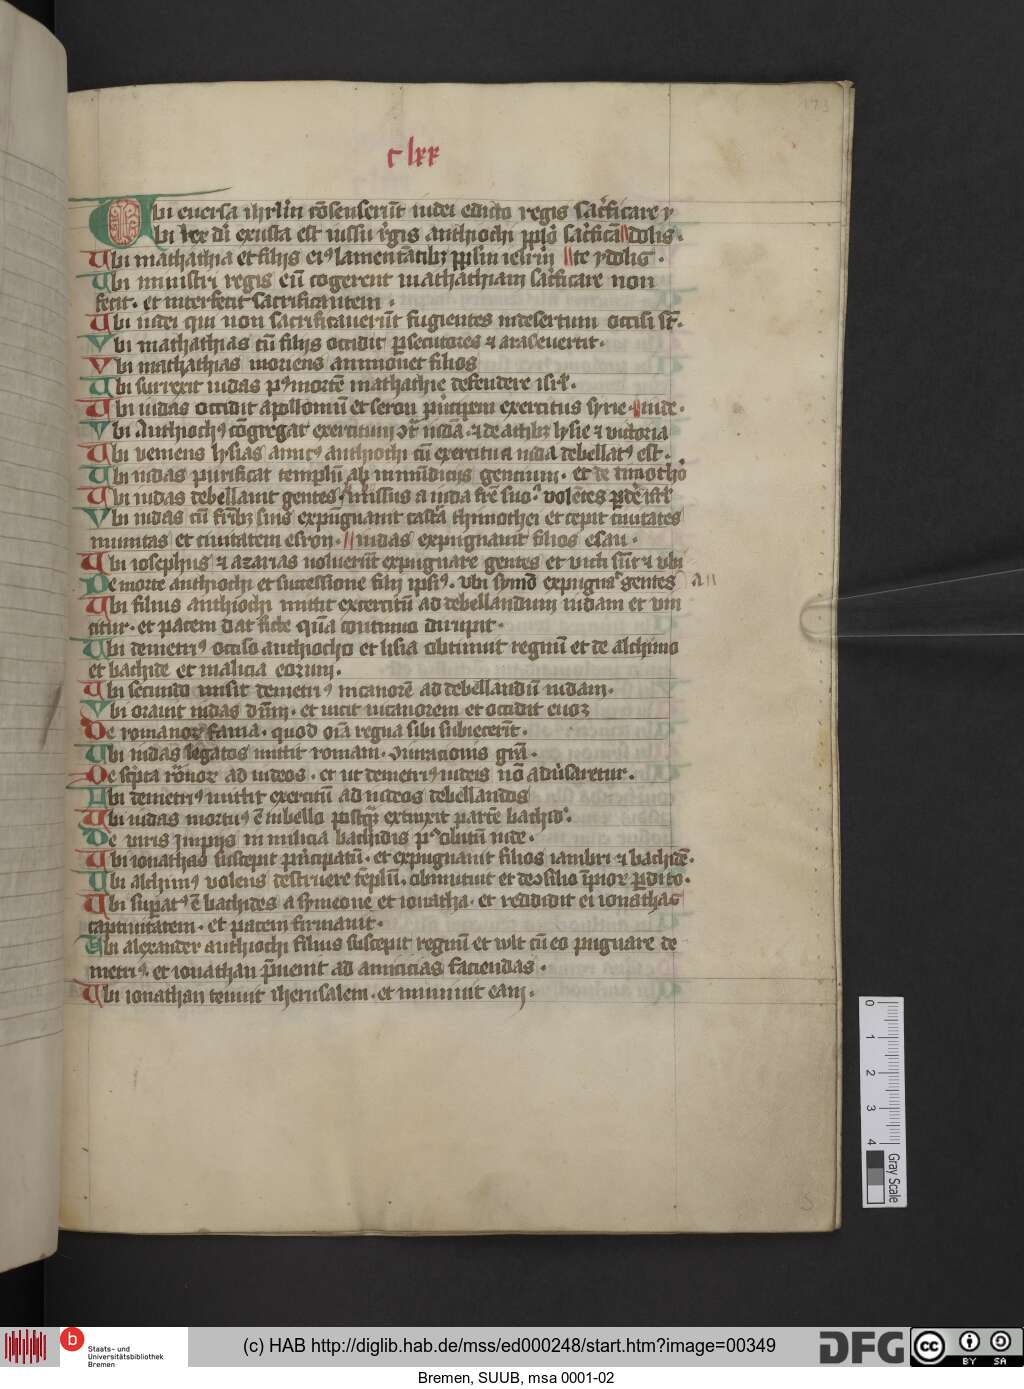 173
c lxx
Ubi euersa ihrlm cōsenserūt iudei edicto regis sac͛ficare y
bi lex dī exusta est iussu r͛gis anthiochi pplō sac͛ficā dolis.
Ubi mathathia et filijs eiꝰ lamentātibꝫ ppl̄m ielrlm te ydolis.
Ubi ministri regis eū cogerent mathathiam sac͛ficare non
fecit. et interfecit sacrificantem.
Ubi iudei qui non sacrificauerūt fugientes indesertum occisi sū͛.
Ubi mathathias cū filijs occidit ꝑsecutores ⁊ aras euertit.
Ubi mathathias moriens ammonet filios
Ubi surrexit iudas pꝰ mortē mathathie defendere isrl̄.
Ubi iudas occidit apolloniū et seron pͥncipem exercitus syrie. iude.
Ubi Anthiochꝰ cōgregat exercitum ꝯͭ iudā. ⁊ de actibꝫ lysie ⁊ victoria
Ubi veniens lysias amicꝰ anthiochi cū exercitu a iuda debellatꝰ est.
Ubi iudas purificat templū ab inmūdicijs gentium. et de timotheo
Ubi iudas debellauit gentes. missus a iuda frē suo. volētes ꝑdēͬ isrl̄
Ubi iudas cū frībꝫ suis expūgnauit castra thimothei et cepit ciuitates
munitas et ciuitatem efron. iudas expugnauit filios esau.
Ubi iosephus ⁊ azarias voluerūt expugnare gentes et victi sūt ⁊ vbi
De morte anthiochi et successione filij ipsiꝰ. vbi symō expugnaͭ gentes all
Ubi filius anthiochi mittit excercitū ad debellandum iudam et vin
citur. et pacem dat ficte quā continuo dirupit.
Ubi demetriꝰ occiso anthiocho et lisia obtinuit regnū et de alchimo
et bachide et malicia eorum.
Ubi secundo misit demetriꝰ nicanorē ad debellandū iudam.
Ubi orauit iudas dn̄m. et vicit nicanorem et occidit euꝫ
De romanoꝝ fama. quod oīa regna sibi subiecerīt.
Ubi iudas legatos mittit romam. Iurationis grā.
De scp̄ta rōnoꝝ ad iudeos. et ut demetriꝰ iudeis nō aduͥsaretur.
Ubi demetriꝰ mittit exercitū ad iudeos debellandos
Ubi iudas mortuꝰ ē inbello postqꝫ extinxit partē bachid͛.
De viris impijs in milicia bachidis pꝰ obitū iude.
Ubi ionathas suscepit pͥncipatū. et expugnauit filios iambri ⁊ bachidē.
Ubi alchimꝰ volens destruere tēplū. obmutuit et de ꝯsilio īpioꝝ ꝑdito.
Ubi suꝑatꝰ ē bachides a symeone et ionatha. et reddidit ei ionathas
captiuitatem. et pacem firmauit.
Ubi alexander anthiochi filius suscepit regnū et vlt cū eo pugnare de
metriꝰ. et ionathan p̄uenit ad amicicias faciendas.
Ubi ionathan tenuit iherusalem. et muniuit eam.
0 1 2 3 4
Gray Scale
B
Staats- und
Universitätsbibliothek
Bremen
(c) HAB http://diglib.hab.de/mss/ed000248/start.htm?image=00349
DFG
cc BY SA
Bremen, SUUB, msa 0001-02